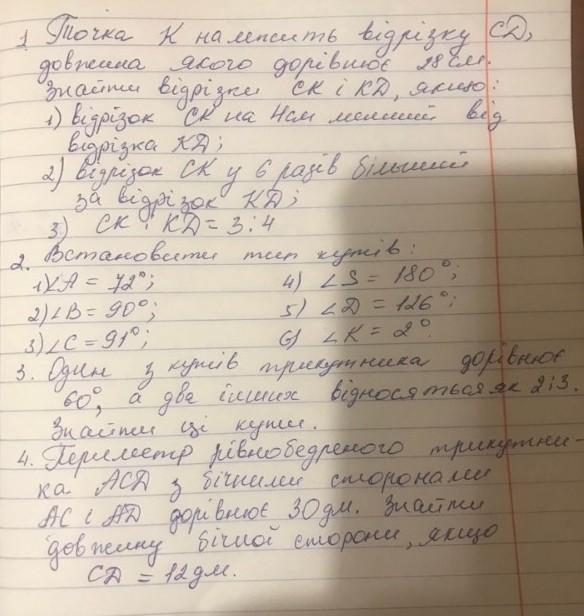 1. Точка К належить відрізку CD,
довжина якого дорівнює 28 см.
Знайти відрізки СК і KD, якщо:
1) відрізок СК на 4см менший від
відрізка KD;
2) відрізок СК у 6 разів більший
за відрізок KD;
3) CK : KD = 3:4
2. Встановити тип кутів:
1) ∠A = 72°; 4) ∠S = 180°;
2) ∠B = 90°; 5) ∠D = 126°;
3) ∠C = 91°; 6) ∠K = 2°.
3. Один з кутів трикутника дорівнює
60°, а два інших відносяться як 2:3.
Знайти ці кути.
4. Периметр рівнобедреного трикутни-
ка ACD з бічними сторонами
AC і AD дорівнює 30 дм. Знайти
довжину бічної сторони, якщо
CD = 12 дм.